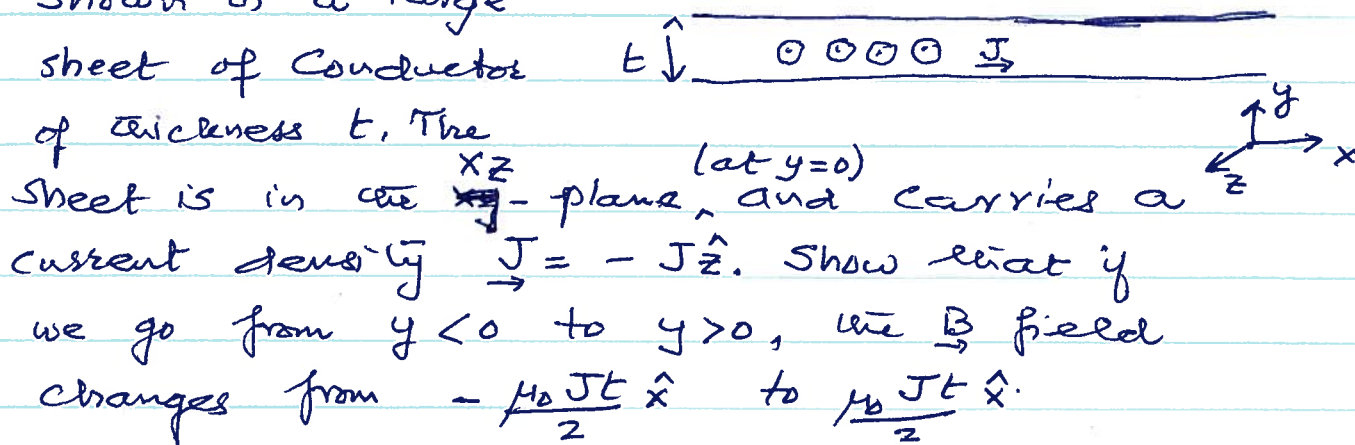 shown is a large
sheet of Conductor t ⊙ ⊙ ⊙ ⊙ J
of thickness t. The y
xz (at y=0) x
sheet is in the - plane, and carries a z
current density J = - J ẑ. Show that if
we go from y < 0 to y > 0, the B field
changes from - μ₀ J t / 2 x̂ to μ₀ J t / 2 x̂.